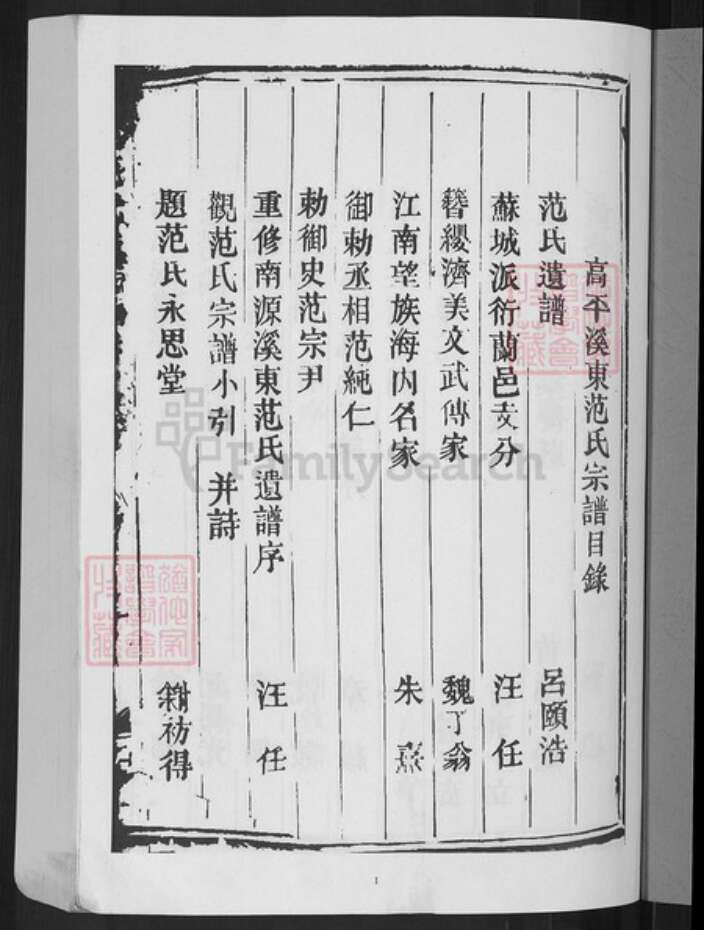 高平溪東范氏宗譜目錄
范氏遺譜 呂頤浩
蘇城派衍蘭邑支分 汪任
簪纓濟美文武傳家 魏了翁
江南望族海內名家 朱熹
御勅丞相范純仁
勅御史范宗尹
重修南源溪東范氏遺譜序 汪任
觀范氏宗譜小引 并詩
題范氏永思堂 謝枋得
FamilySearch
1